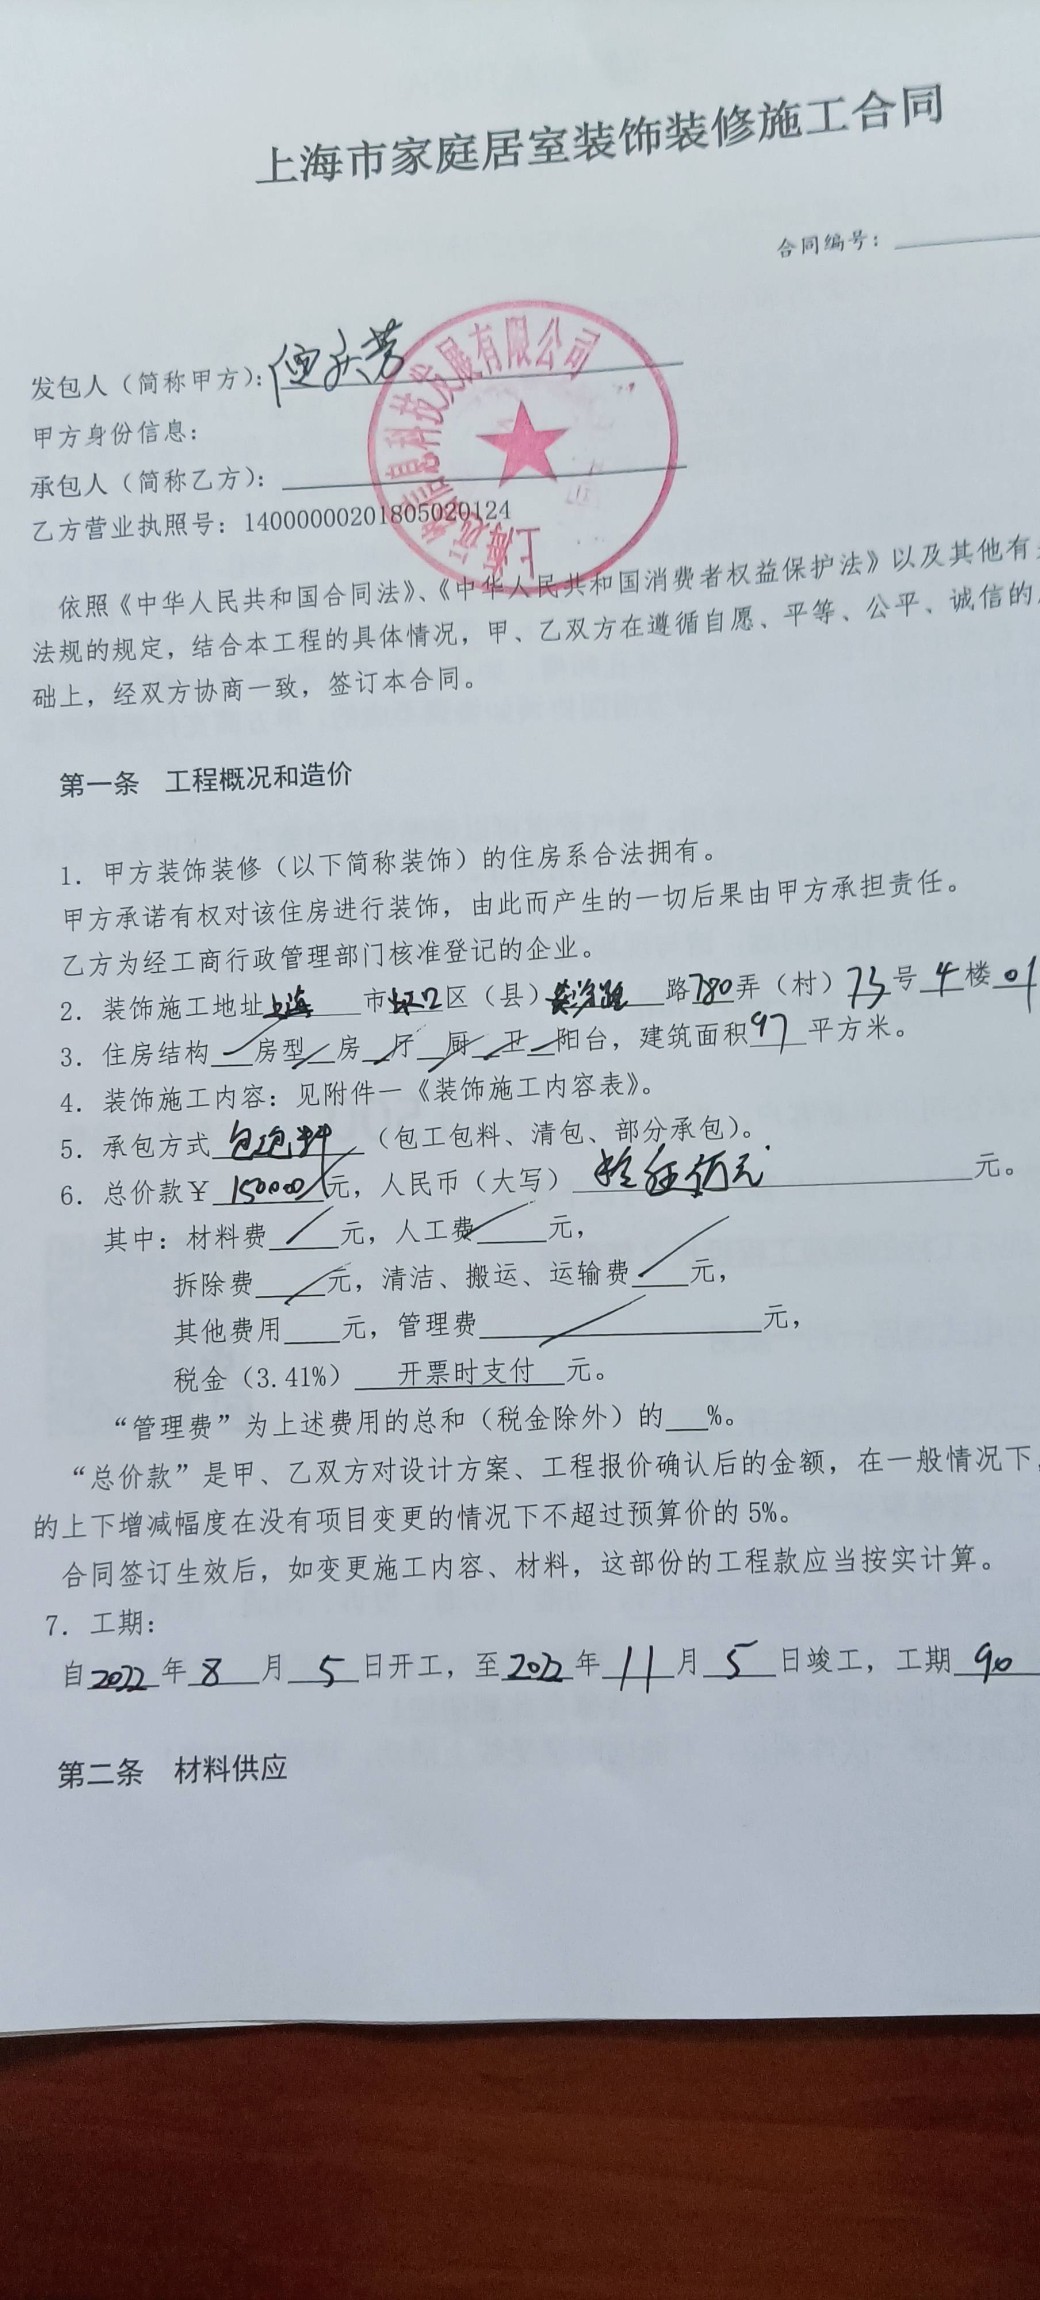 上海市家庭居室装饰装修施工合同
合同编号：
发包人（简称甲方）：
甲方身份信息：
承包人（简称乙方）：
乙方营业执照号：14000000201805020124
信息科技发展有限公司
上海
依照《中华人民共和国合同法》、《中华人民共和国消费者权益保护法》以及其他有
法规的规定，结合本工程的具体情况，甲、乙双方在遵循自愿、平等、公平、诚信的
础上，经双方协商一致，签订本合同。
第一条 工程概况和造价
1. 甲方装饰装修（以下简称装饰）的住房系合法拥有。
甲方承诺有权对该住房进行装饰，由此而产生的一切后果由甲方承担责任。
乙方为经工商行政管理部门核准登记的企业。
2. 装饰施工地址上海 市虹口区（县） 路780弄（村）73号4楼01
3. 住房结构 房型 房 厅 厨 卫 阳台，建筑面积97平方米。
4. 装饰施工内容：见附件一《装饰施工内容表》。
5. 承包方式 包工包料 （包工包料、清包、部分承包）。
6. 总价款￥ 150000 元，人民币（大写） 拾伍万元 元。
其中：材料费 元，人工费 元，
拆除费 元，清洁、搬运、运输费 元，
其他费用 元，管理费 元，
税金（3.41%） 开票时支付 元。
“管理费”为上述费用的总和（税金除外）的 %。
“总价款”是甲、乙双方对设计方案、工程报价确认后的金额，在一般情况下
的上下增减幅度在没有项目变更的情况下不超过预算价的 5%。
合同签订生效后，如变更施工内容、材料，这部份的工程款应当按实计算。
7. 工期：
自2022年8月5日开工，至2022年11月5日竣工，工期90
第二条 材料供应